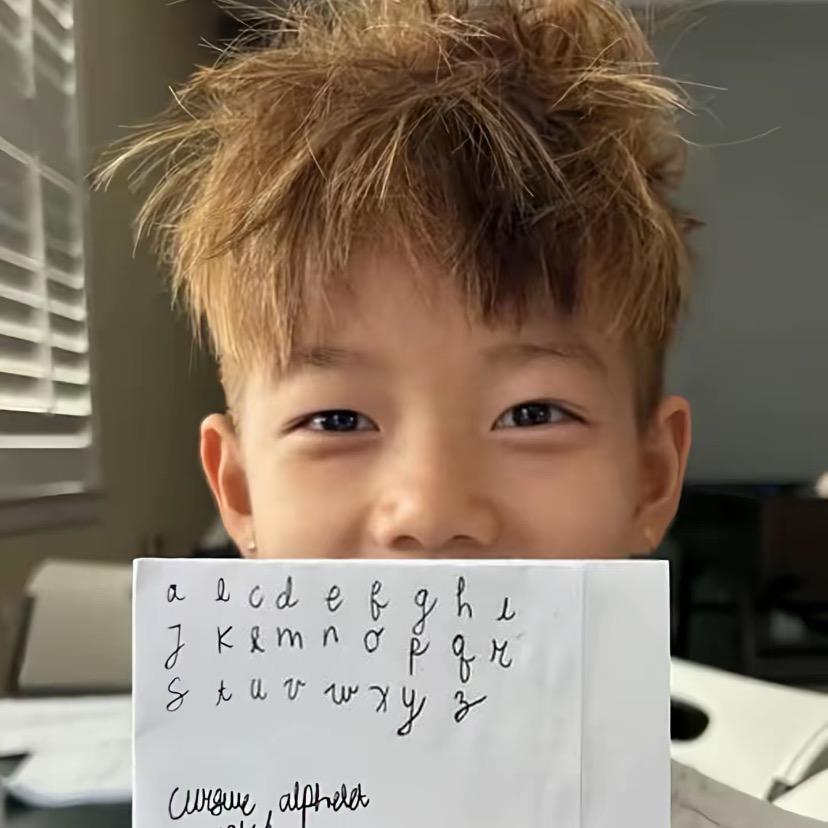 a b c d e f g h i
J K l m n o p q r
S t u v w x y z
cursive alphabet